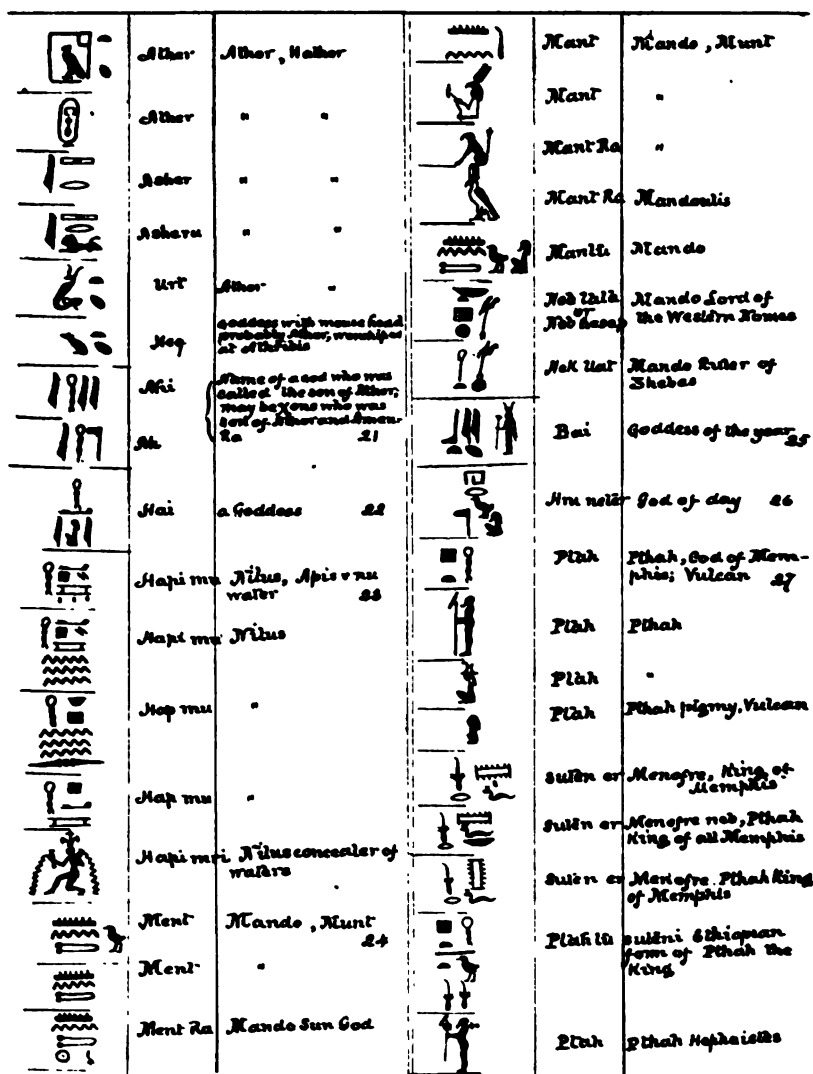 Athor Athor, Hathor
Athor " "
Asher " "
Asheru " "
Urt Athor "
Heq goddess with mouse head
probably Athor, worshiped
at Athribis
Ahi Name of a god who was
called the son of Athor;
may be Xons who was
son of Athor and Amen-
Ah Ra 21
Hai a Goddess 22
Hapi mu Nilus, Apis v nu
water 23
Hapi mu Nilus
Hap mu "
Hap mu "
Hapi mri Nilus concealer of
waters
Ment Mando, Munt
24
Ment "
Ment Ra Mando Sun God
Mant Mando, Munt
Mant "
Mant Ra "
Mant Ra Mandoulis
Mantu Mando
Neb Mando Lord of
or the Western Nomes
Neb
Hek Uat Mando Ruler of
Thebas
Bai Goddess of the year
25
Hru neter God of day 26
Ptah Pthah, God of Mem-
phis; Vulcan 27
Ptah Pthah
Ptah "
Ptah Pthah pigmy, Vulcan
Suten er Menofre, King of
Memphis
Suten er Menofre neb, Pthah
King of all Memphis
Suten er Menofre. Pthah King
of Memphis
Ptah tu suteni Ethiopian
form of Pthah the
King
Ptah Pthah Hephaistes